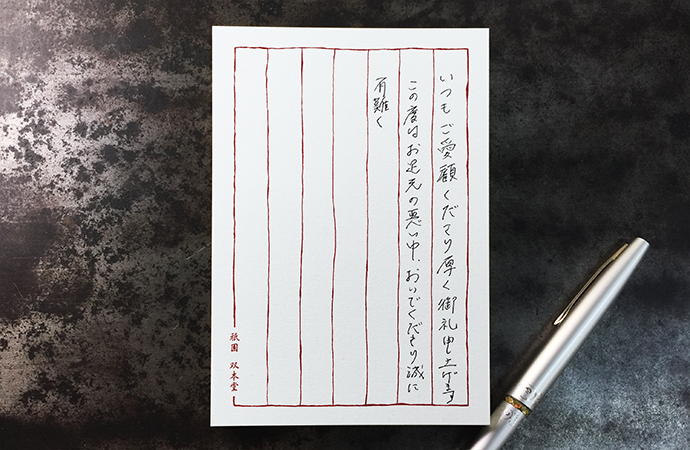 いつもご愛顧くださり厚く御礼申上げます
この度はお足元の悪い中、おいでくださり誠に
有難く
祇園 双木堂